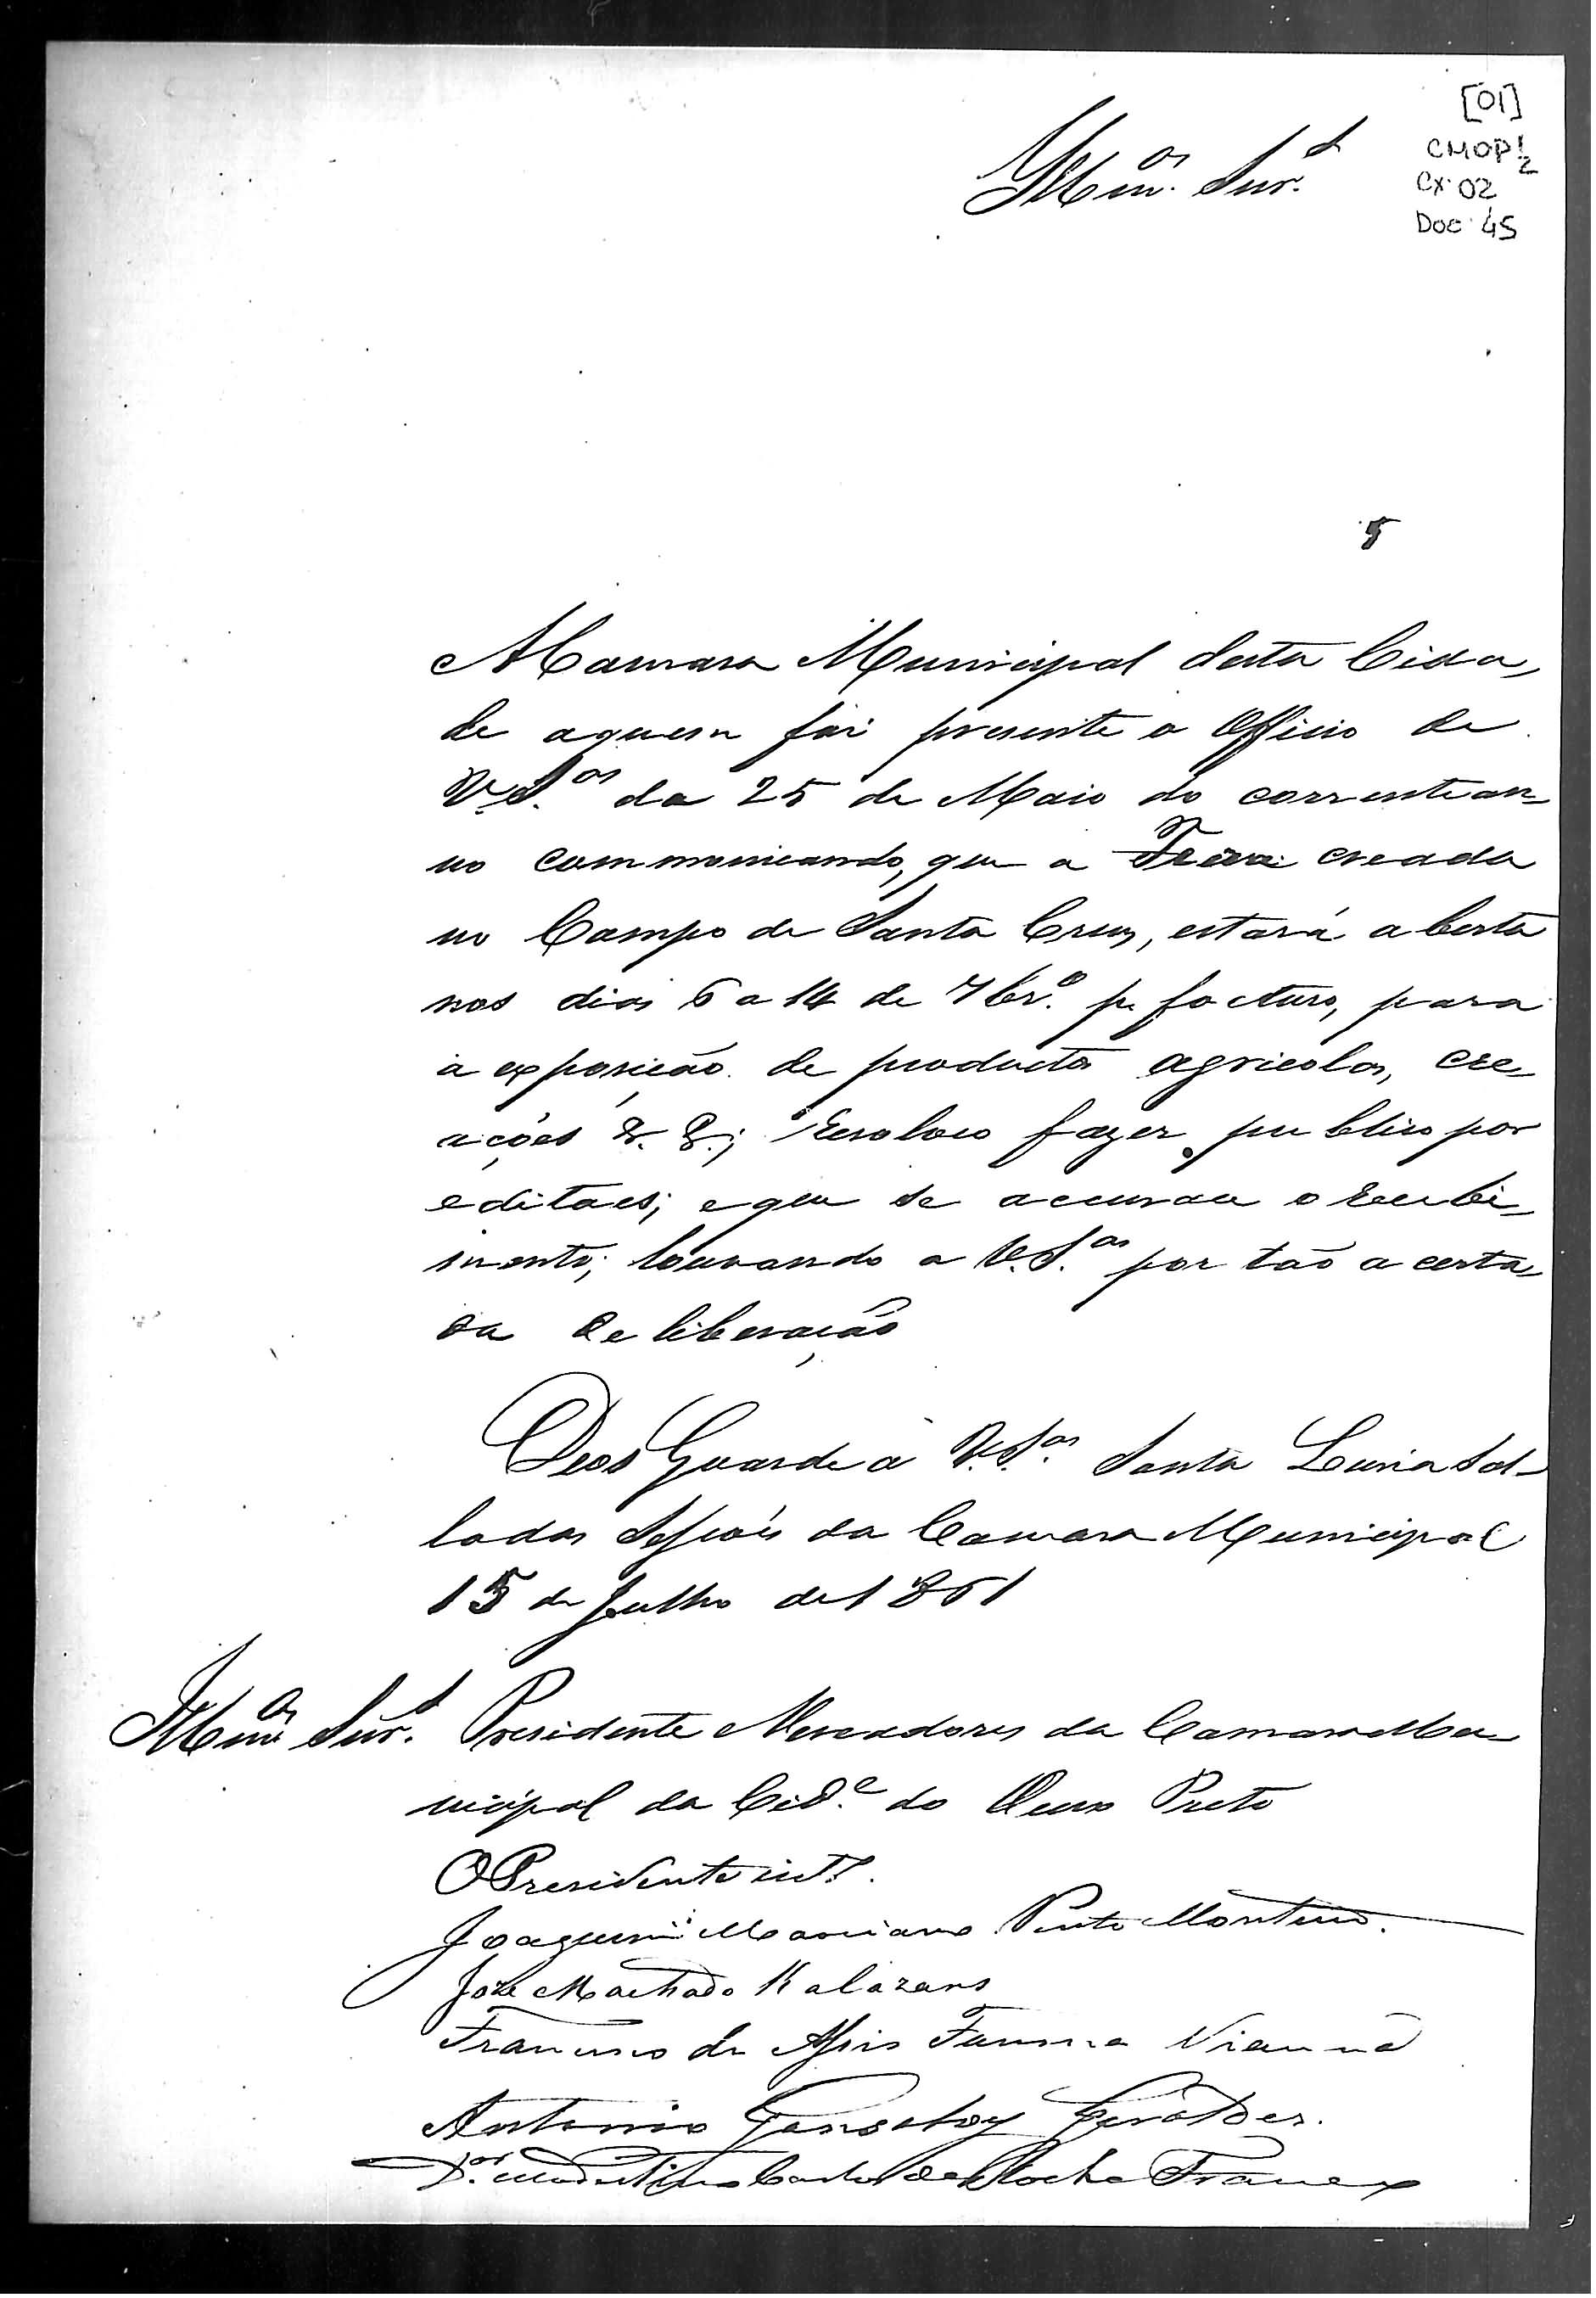 [01]
CMOP 2
Cx. 02
Doc 45
Illm.os Snr.s
A Camara Municipal desta Cida,
de aquem foi presente o Officio de
V.S.as da 25 de Maio do corrente an-
no communicando, que a Feira creada
no Campo de Santa Cruz, estará aberta
nos dias 6 a 14 de 7br.o p. facturo, para
a exposição de productos agricolas, cre,
ações &. &.; resolveo fazer publico por
editaes; e que se accusace o recebi,
mento; louvando a V.S.as por tão acerta,
da deliberação
Deos Guarde a V.S.as Santa Luzia Sal-
la das Sessoẽs da Camara Municipal
15 de Julho de 1861
Illm.os Snr.s Presidente e Vereadores da Camara Mu-
nicipal da Cid.e do Ouro Preto
O Presidente int.o
Joaquim Marciano Pinto Monteiro.
Joze Machado Kalazans
Francisco de Assis Fonseca Vianna
Antonio Gonsalvez
D.or Modestino Carlos da Rocha Franco